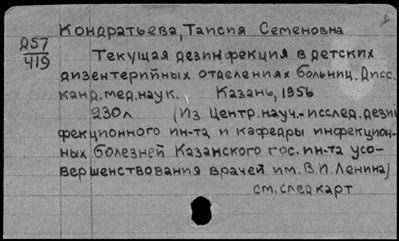 Кондратьева, Таисия Семеновна
Д57
419
Текущая дезинфекция в детских
дизентерийных отделениях больниц. Дисс.
канд. мед. наук. Казань, 1956
230л (Из Центр. науч.-исслед. дезин
фекционного ин-та и кафедры инфекцион-
ных болезней Казанского гос. ин-та усо-
вершенствования врачей им. В.И. Ленина)
см. след карт